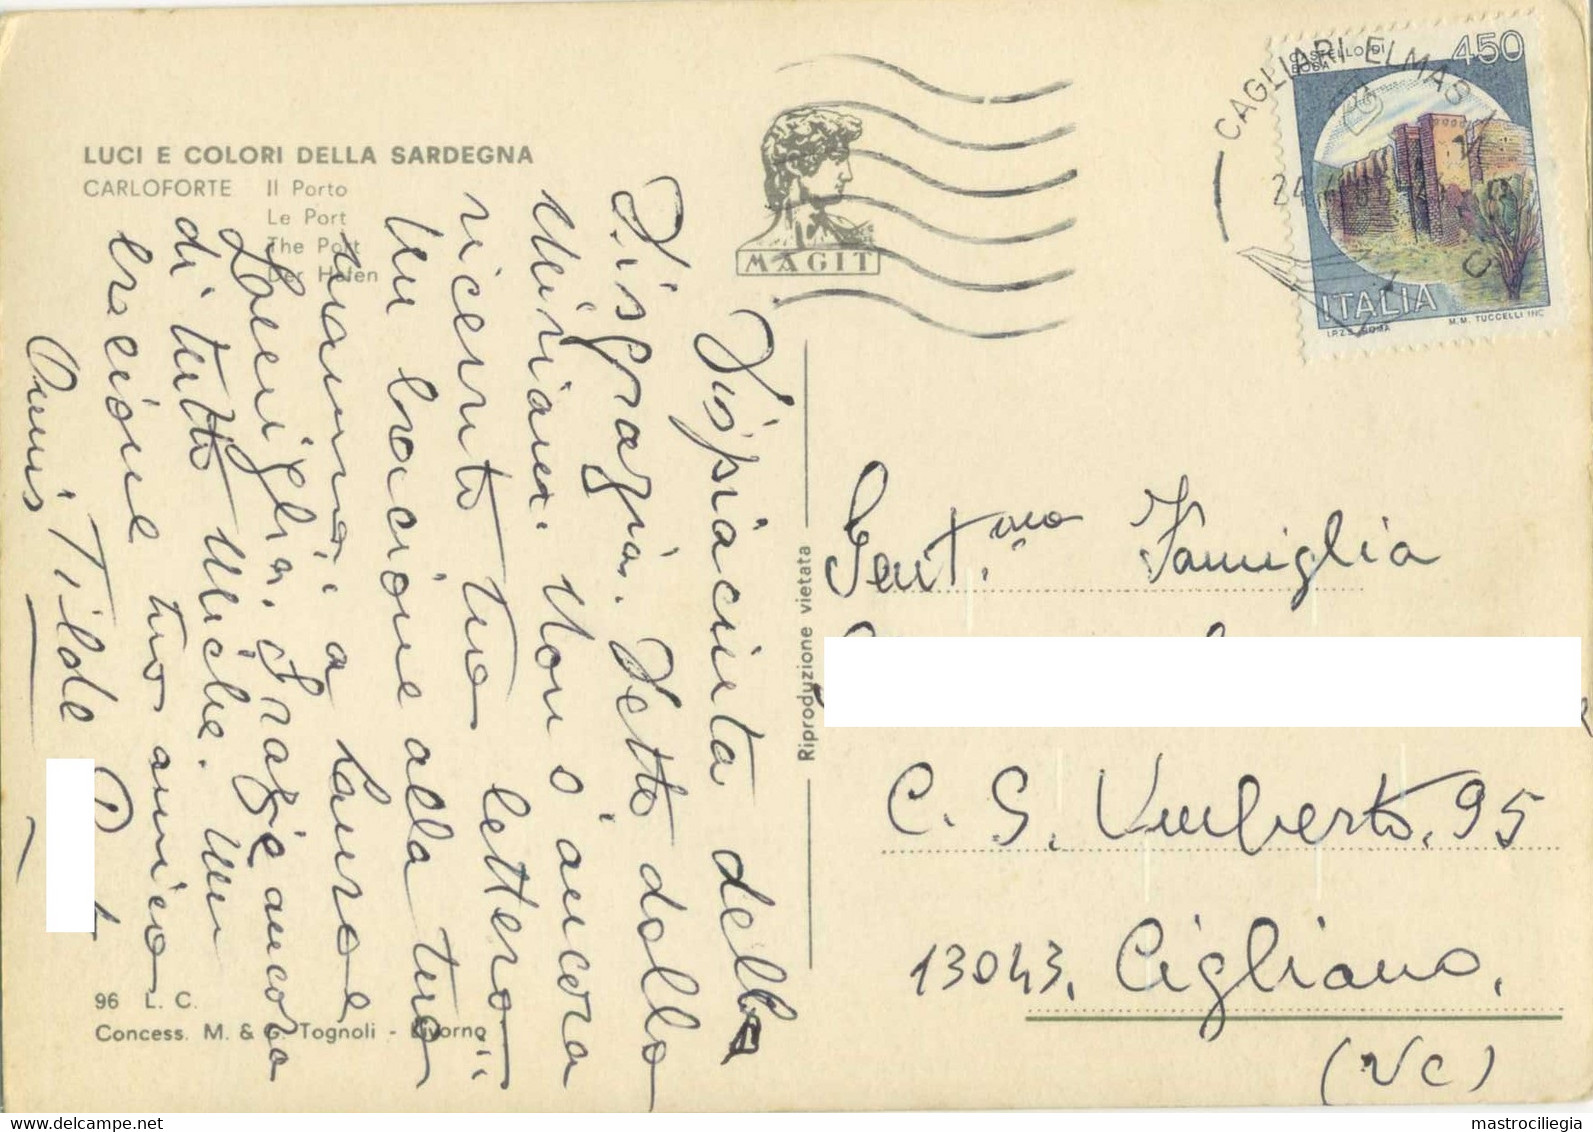 LUCI E COLORI DELLA SARDEGNA
CARLOFORTE Il Porto
Le Port
The Port
Der Hafen
MAGIT
CAGLIARI ELMAS
24
450
CASTELLO DI
BOSA
ITALIA
I.P.Z.S. ROMA M.M. TUCCELLI INC.
Dispiaciuta della
Disgrazia. Detto dallo
Miriam. Non s'ancora
ricevuto tua lettera
Un bacione alla tua
mamma, a Laura e
famiglia. Grazie ancora
di tutto Miche. Un
bacione tuo amico
Tilde
Riproduzione vietata
Gent.ma Famiglia
C. S. Umberto, 95
13043, Cigliano,
(VC)
96 L. C.
Concess. M. & G. Tognoli - Livorno
www.delcampe.net
mastrociliegia